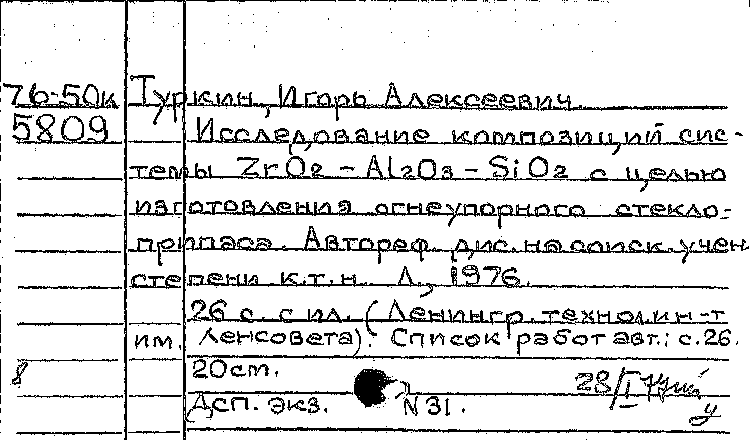 76-50к Туркин, Игорь Алексеевич.
5809 Исследование композиций сис-
темы ZrO2 – Al2O3 – SiO2 с целью
изготовления огнеупорного стекло-
припаса. Автореф. дис. на соиск. учен.
степени к.т.н. Л., 1976.
26 с. с ил. (Ленингр. технол. ин-т
им. Ленсовета). Список работ авт.: с. 26.
8 20 cm.
Дсп. экз. N 31. 28/I